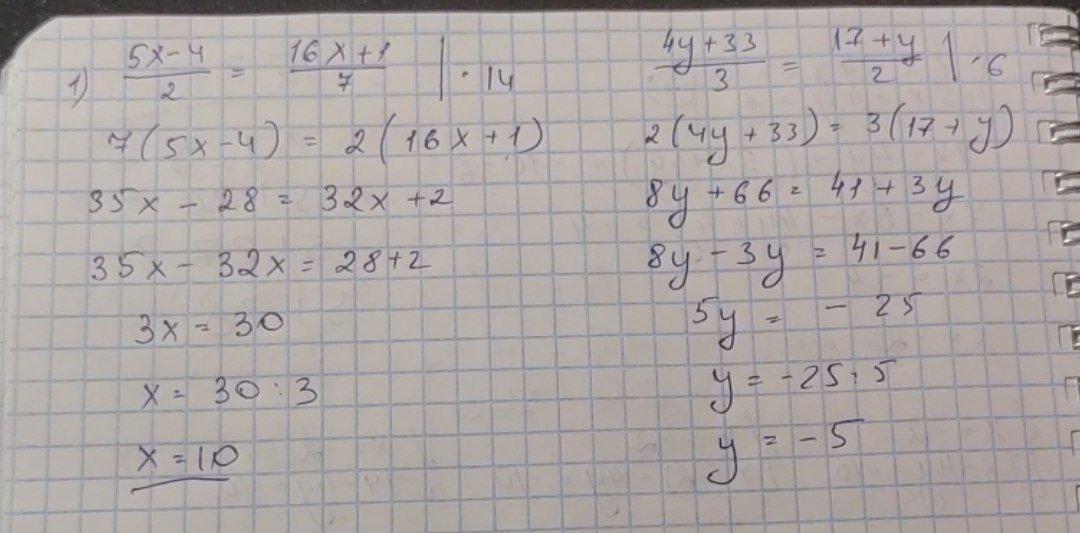 1) (5x-4)/2 = (16x+1)/7 | · 14
7(5x-4) = 2(16x+1)
35x - 28 = 32x +2
35x - 32x = 28+2
3x = 30
x = 30 : 3
x = 10
(4y+33)/3 = (17+y)/2 | · 6
2(4y+33) = 3(17+y)
8y + 66 = 41 + 3y
8y - 3y = 41-66
5y = - 25
y = -25 : 5
y = -5